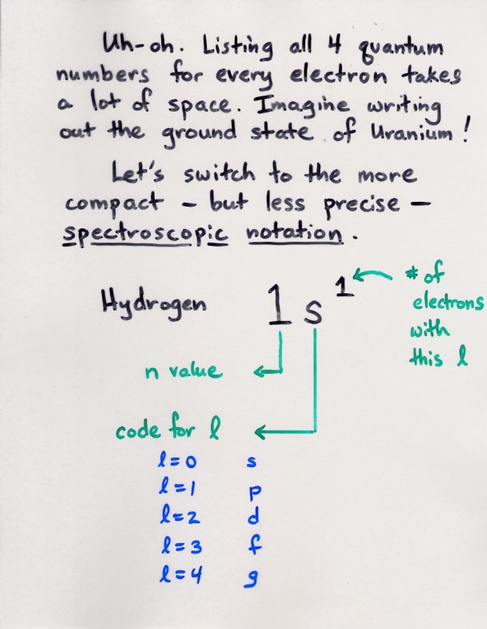 Uh-oh. Listing all 4 quantum
numbers for every electron takes
a lot of space. Imagine writing
out the ground state of Uranium!
Let's switch to the more
compact - but less precise -
spectroscopic notation.
Hydrogen 1s¹ # of
electrons
with
this l
n value
code for l
l=0 s
l=1 p
l=2 d
l=3 f
l=4 g